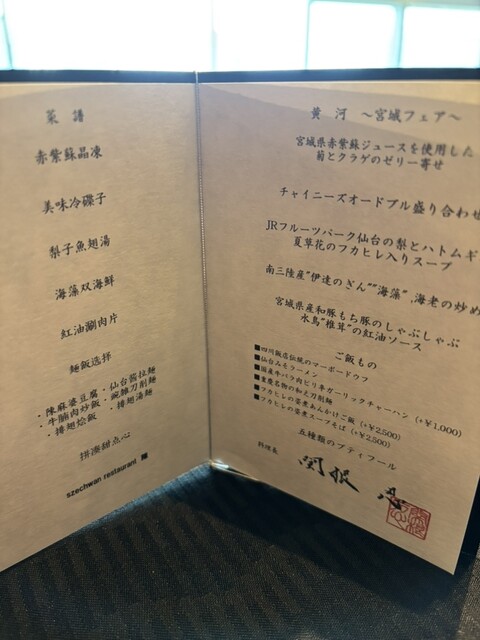 菜譜
赤紫蘇晶凍
美味冷碟子
梨子魚翅湯
海藻双海鮮
紅油涮肉片
麺飯选择
・陳麻婆豆腐・仙台醤拉麺
・牛腩肉炒飯・豌雑刀削麺
・排翅烩飯 ・排翅湯麺
拼湊甜点心
szechwan restaurant 陳
黄河 ～宮城フェア～
宮城県赤紫蘇ジュースを使用した
菊とクラゲのゼリー寄せ
チャイニーズオードブル盛り合わせ
JRフルーツパーク仙台の梨とハトムギ
夏草花のフカヒレ入りスープ
南三陸産"伊達のぎん""海藻",海老の炒め
宮城県産和豚もち豚のしゃぶしゃぶ
水鳥"椎茸"の紅油ソース
ご飯もの
■四川飯店伝統のマーボードウフ
■仙台みそラーメン
■国産牛バラ肉ピリ辛ガーリックチャーハン (+¥1,000)
■重慶名物の和え刀削麺
■フカヒレの姿煮あんかけご飯 (+¥2,500)
■フカヒレの姿煮スープそば (+¥2,500)
五種類のプティフール
料理長 関根